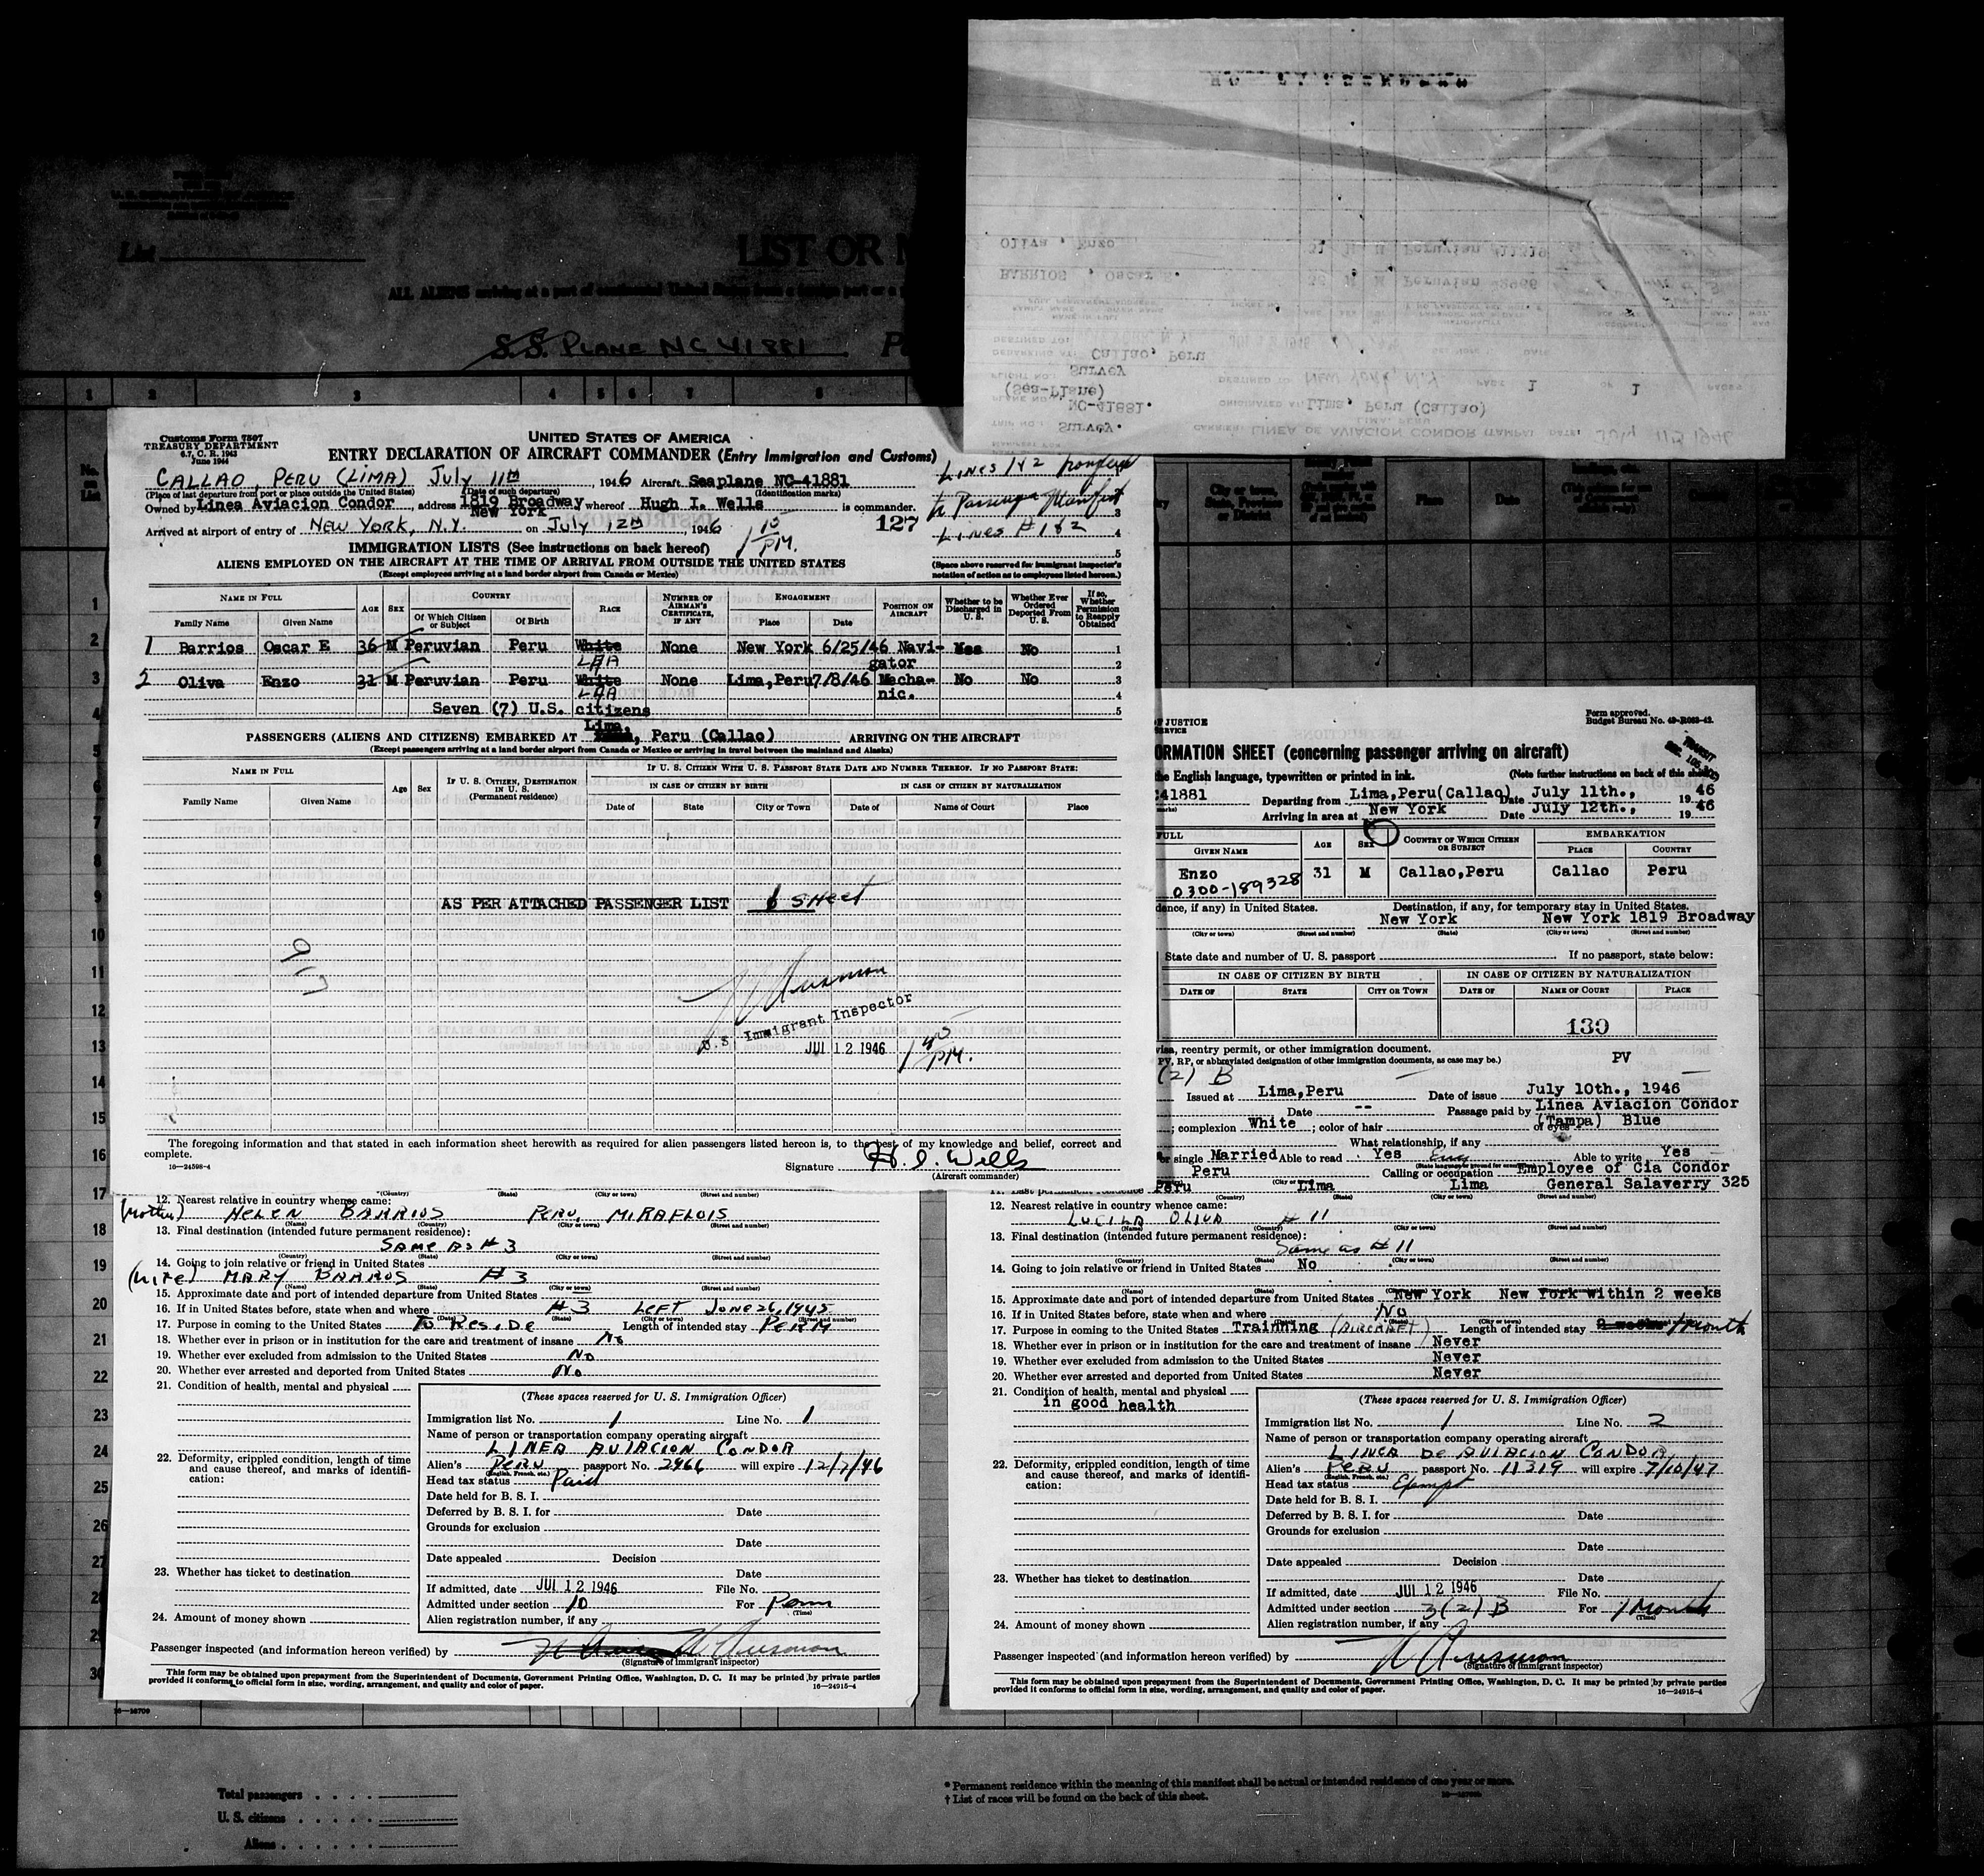 List
LIST OR
ALL ALIENS arriving at a port of continental United States from a foreign port or a
S.S. PLANE NC 41881
1 2 3 4 5 6 7 8
Oliva , Enzo 31 M M Peruvian #11319
BARRIOS , Oscar E. 36 M M Peruvian #2966
DEBARKING AT: Callao, Peru
FLIGHT NO. Survey DESTINED TO: New York, N.Y. PAGE 1 OF 1 PAGES
PLANE NO. (Sea-Plane) NC-41881. ORIGINATED AT: Lima, Peru (Callao)
TRIP NO.: Survey. CARRIER: LINEA DE AVIACION CONDOR (TAMPA) DATE: July 11th 1946
Customs Form 7507
TREASURY DEPARTMENT
6.7, C. R. 1943
June 1944
UNITED STATES OF AMERICA
ENTRY DECLARATION OF AIRCRAFT COMMANDER (Entry Immigration and Customs)
CALLAO, PERU (LIMA) July 11th, 1946 Aircraft Seaplane NC-41881
(Place of last departure from port or place outside the United States) (Date of such departure) (Identification marks)
Owned by Linea Aviacion Condor, address 1819 Broadway New York whereof Hugh I. Wells is commander.
Arrived at airport of entry of NEW YORK, N.Y. on July 12th, 1946 1 15 PM. 127
Lines 1&2
to Passenger Manifest 3
Lines #1&2 4
5
(Space above reserved for immigrant inspector's notation of action as to employees listed hereon.)
IMMIGRATION LISTS (See instructions on back hereof)
ALIENS EMPLOYED ON THE AIRCRAFT AT THE TIME OF ARRIVAL FROM OUTSIDE THE UNITED STATES
(Except employees arriving at a land border airport from Canada or Mexico)
NAME IN FULL AGE SEX COUNTRY RACE NUMBER OF AIRMAN'S CERTIFICATE, IF ANY ENGAGEMENT POSITION ON AIRCRAFT Whether to be Discharged in U. S. Whether Ever Ordered Deported From U. S. If so, Whether Permission to Reapply Obtained
Family Name Given Name Of Which Citizen or Subject Of Birth Place Date
1 Barrios Oscar E 36 M Peruvian Peru White None New York 6/25/46 Navi- Yes No 1
LAA gator 2
2 Oliva Enzo 31 M Peruvian Peru White None Lima,Peru 7/8/46 Mecha- No No 3
LAA nic. 4
Seven (7) U.S. citizens 5
PASSENGERS (ALIENS AND CITIZENS) EMBARKED AT Lima, Peru (Callao) ARRIVING ON THE AIRCRAFT
(Except passengers arriving at a land border airport from Canada or Mexico or arriving in travel between the mainland and Alaska)
NAME IN FULL Age Sex IF U. S. CITIZEN, DESTINATION IN U. S. (Permanent residence) IF U. S. CITIZEN WITH U. S. PASSPORT STATE DATE AND NUMBER THEREOF. IF NO PASSPORT STATE:
IN CASE OF CITIZEN BY BIRTH IN CASE OF CITIZEN BY NATURALIZATION
Family Name Given Name Date of State City or Town Date of Name of Court Place
AS PER ATTACHED PASSENGER LIST 1 SHEET
U.S. Immigrant Inspector
JUL 12 1946 1 45 PM.
The foregoing information and that stated in each information sheet herewith as required for alien passengers listed hereon is, to the best of my knowledge and belief, correct and complete.
16—24598-4
Signature H. I. Wells
(Aircraft commander)
12. Nearest relative in country whence came:
(Mother) HELEN BARRIOS PERU, MIRAFLOIS
(Name) (Country) (City or town) (Street and number)
13. Final destination (intended future permanent residence):
SAME AS #3
(Country) (State) (City or town) (Street and number)
14. Going to join relative or friend in United States
(WIFE) MARY BARRIOS #3
(Name) (State) (City or town) (Street and number)
15. Approximate date and port of intended departure from United States
16. If in United States before, state when and where #3 LEFT JUNE 26, 1945
17. Purpose in coming to the United States TO RESIDE Length of intended stay PERM
18. Whether ever in prison or in institution for the care and treatment of insane No
19. Whether ever excluded from admission to the United States No
20. Whether ever arrested and deported from United States No
21. Condition of health, mental and physical
22. Deformity, crippled condition, length of time and cause thereof, and marks of identification:
23. Whether has ticket to destination
24. Amount of money shown
(These spaces reserved for U. S. Immigration Officer)
Immigration list No. 1 Line No. 1
Name of person or transportation company operating aircraft
LINEA AVIACION CONDOR
Alien's PERU passport No. 2966 will expire 12/7/46
(English, French, etc.)
Head tax status Paid
Date held for B. S. I.
Deferred by B. S. I. for Date
Grounds for exclusion
Date
Date appealed Decision
Date
If admitted, date JUL 12 1946 File No.
Admitted under section 10 For Perm
(Time)
Alien registration number, if any
Passenger inspected (and information hereon verified) by
(Signature of immigrant inspector)
This form may be obtained upon prepayment from the Superintendent of Documents, Government Printing Office, Washington, D. C. It may be printed by private parties
provided it conforms to official form in size, wording, arrangement, and quality and color of paper. 16—24915-4
OF JUSTICE
SERVICE
Form approved.
Budget Bureau No. 43-R063-42.
TRANSIT
ORMATION SHEET (concerning passenger arriving on aircraft)
the English language, typewritten or printed in ink. (Note further instructions on back of this sheet)
41881 Departing from Lima,Peru(Callao) Date July 11th., 1946
Arriving in area at New York Date July 12th., 1946
FULL AGE SEX COUNTRY OF WHICH CITIZEN OR SUBJECT EMBARKATION
GIVEN NAME PLACE COUNTRY
Enzo 31 M Callao,Peru Callao Peru
0300-189328
dence, if any) in United States. Destination, if any, for temporary stay in United States.
New York New York 1819 Broadway
(City or town) (Street and number) (State) (City or town) (Street and number)
State date and number of U. S. passport If no passport, state below:
IN CASE OF CITIZEN BY BIRTH IN CASE OF CITIZEN BY NATURALIZATION
DATE OF STATE CITY OR TOWN DATE OF NAME OF COURT PLACE
130
visa, reentry permit, or other immigration document.
PV, RP, or abbreviated designation of other immigration documents, as case may be.) PV
(2) B
Issued at Lima,Peru Date of issue July 10th., 1946
Date -- Passage paid by Linea Aviacion Condor
; complexion White ; color of hair (Tampa) of eyes Blue
What relationship, if any
or single Married Able to read Yes Able to write Yes
Peru Calling or occupation Employee of Cia Condor
Peru Lima Lima General Salaverry 325
(Country) (State) (City or town) (Street and number)
12. Nearest relative in country whence came:
LUCILA OLIVA #11
(Name) (City or town) (Street and number)
13. Final destination (intended future permanent residence):
Same as #11
(Country) (State) (City or town) (Street and number)
14. Going to join relative or friend in United States No
(Name) (State) (City or town) (Street and number)
15. Approximate date and port of intended departure from United States New York New York within 2 weeks
16. If in United States before, state when and where No
17. Purpose in coming to the United States Trainning (AIRCRAFT) Length of intended stay 2 weeks 1 Month
18. Whether ever in prison or in institution for the care and treatment of insane Never
19. Whether ever excluded from admission to the United States Never
20. Whether ever arrested and deported from United States Never
21. Condition of health, mental and physical
in good health
22. Deformity, crippled condition, length of time and cause thereof, and marks of identification:
23. Whether has ticket to destination
24. Amount of money shown
(These spaces reserved for U. S. Immigration Officer)
Immigration list No. 1 Line No. 2
Name of person or transportation company operating aircraft
LINEA DE AVIACION CONDOR
Alien's PERU passport No. 11319 will expire 7/10/47
(English, French, etc.)
Head tax status Exempt
Date held for B. S. I.
Deferred by B. S. I. for Date
Grounds for exclusion
Date
Date appealed Decision
Date
If admitted, date JUL 12 1946 File No.
Admitted under section 3(2) B For 1 Month
(Time)
Alien registration number, if any
Passenger inspected (and information hereon verified) by
(Signature of immigrant inspector)
This form may be obtained upon prepayment from the Superintendent of Documents, Government Printing Office, Washington, D. C. It may be printed by private parties
provided it conforms to official form in size, wording, arrangement, and quality and color of paper. 16—24915-4
Total passengers
U. S. citizens
Aliens
* Permanent residence within the meaning of this manifest shall be actual or intended residence of one year or more.
† List of races will be found on the back of this sheet.